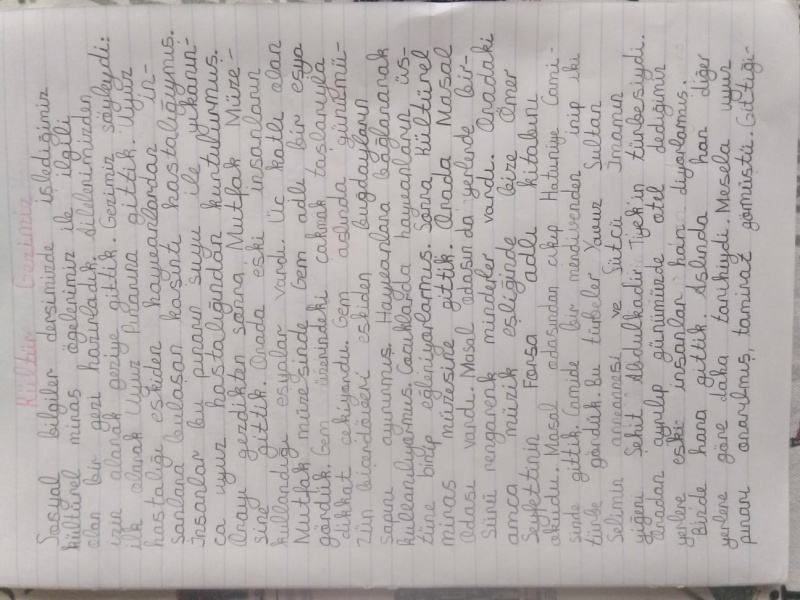 Kültür Gezimiz
Sosyal bilgiler dersimizde işlediğimiz
kültürel miras ögelerimiz ile ilgili
olan bir gezi hazırladık. Ailelerimizden
izin alarak geziye gittik. Gezimiz şöyleydi:
ilk olarak Uyuz Pınarına gittik. Uyuz
hastalığı eskiden hayvanlardan in-
sanlara bulaşan kaşıntı hastalığıymış.
İnsanlar bu pınarın suyu ile yıkanın-
ca uyuz hastalığından kurtulurmuş.
Orayı gezdikten sonra Mutfak Müze-
sine gittik. Orada eski insanların
kullandığı eşyalar vardı. Üç katlı olan
Mutfak müzesinde Gem adlı bir eşya
gördük. Gem üzerindeki çakmak taşlarıyla
dikkat çekiyordu. Gem aslında günümü-
zün biçerdöveri eskiden buğdayların
sapını ayırırmış. Hayvanlara bağlanarak
kullanılıyormuş. Çocuklarda hayvanların üs-
tüne binip eğleniyorlarmış. Sonra kültürel
miras müzesine gittik. Orada Masal
Odası vardı. Masal odasın da yerlerde bir-
sürü rengarenk minderler vardı. Oradaki
amca müzik eşliğinde bize Ömer
Seyfettinin Forsa adlı kitabını
okudu. Masal odasından çıkıp Hatuniye Cami-
sine gittik. Camide bir merdivenden inip iki
türbe gördük. Bu türbeler Yavuz Sultan
Selimin anneannesi ve Sütçü İmamın
yiğeni Şehit Abdulkadir Tiyek'in türbesiydi.
Oradan ayrılıp günümüzde otel dediğimiz
yerlere eski insanlar han diyorlarmış.
Bizde hana gittik. Aslında han diğer
yerlere göre daha tarihiydi. Mesela uyuz
pınarı onarılmış, tamirat görmüştü. Gittiği-